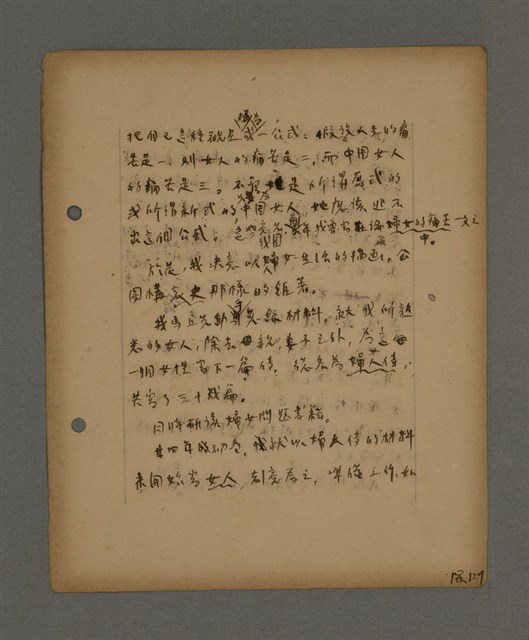 構造
把自己這經驗造成一公式:假設人生的痛
苦是一,則女人的痛苦是二,而中国女人
的痛苦是三。不管她是所謂舊式的
或所謂新式的中国女人,她應該逃不
出這個公式。年我曾寫在論婦女的痛苦一文之
中。
於是,我決意以婦女生活的描画,企
图構哀史那樣的組著。
我為立先動手集材料。就我所熟
悉的女人,除去母親,妻子之外,為這每
一個女性寫下一篇傳,總名為婦人傳,
共寫了三十幾篇。
同時研讀婦女問題書籍。
廿四年我就以婦人傳的材料
來開始寫女人,刻意為之,準備工作,如